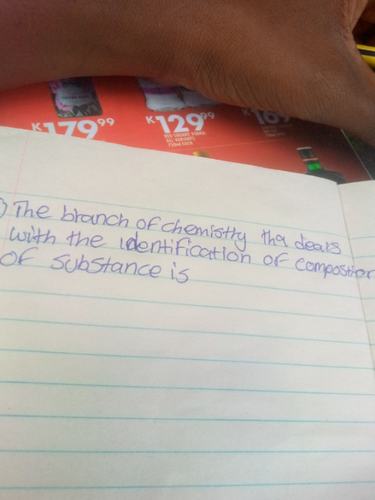 K179⁹⁹ K129⁹⁹
ALL VARIANTS
750ml EACH
) The branch of chemistry tha deals
with the identification of composition
of substance is